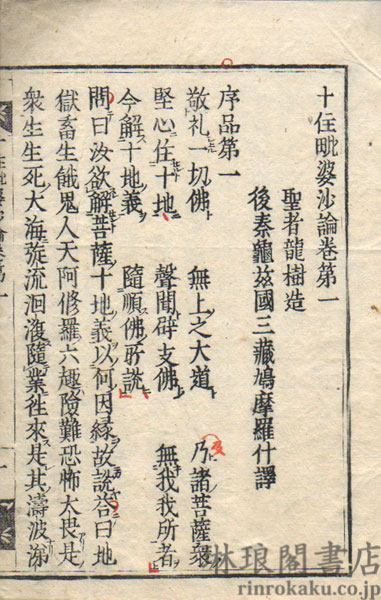 十住毗婆沙論卷第一
聖者龍樹造
後秦龜玆國三藏鳩摩羅什譯
序品第一
敬礼一切佛 無上之大道 乃諸菩薩衆
堅心住十地 聲聞辟支佛 無我我所者
今解十地義 隨順佛所説
問曰汝欲解菩薩十地義以何因縁故説荅曰地
獄畜生餓鬼人天阿修羅六趣險難恐怖大畏是
衆生生死大海旋流洄澓隨業徃來是其濤波涕
林琅閣書店
rinrokaku.co.jp